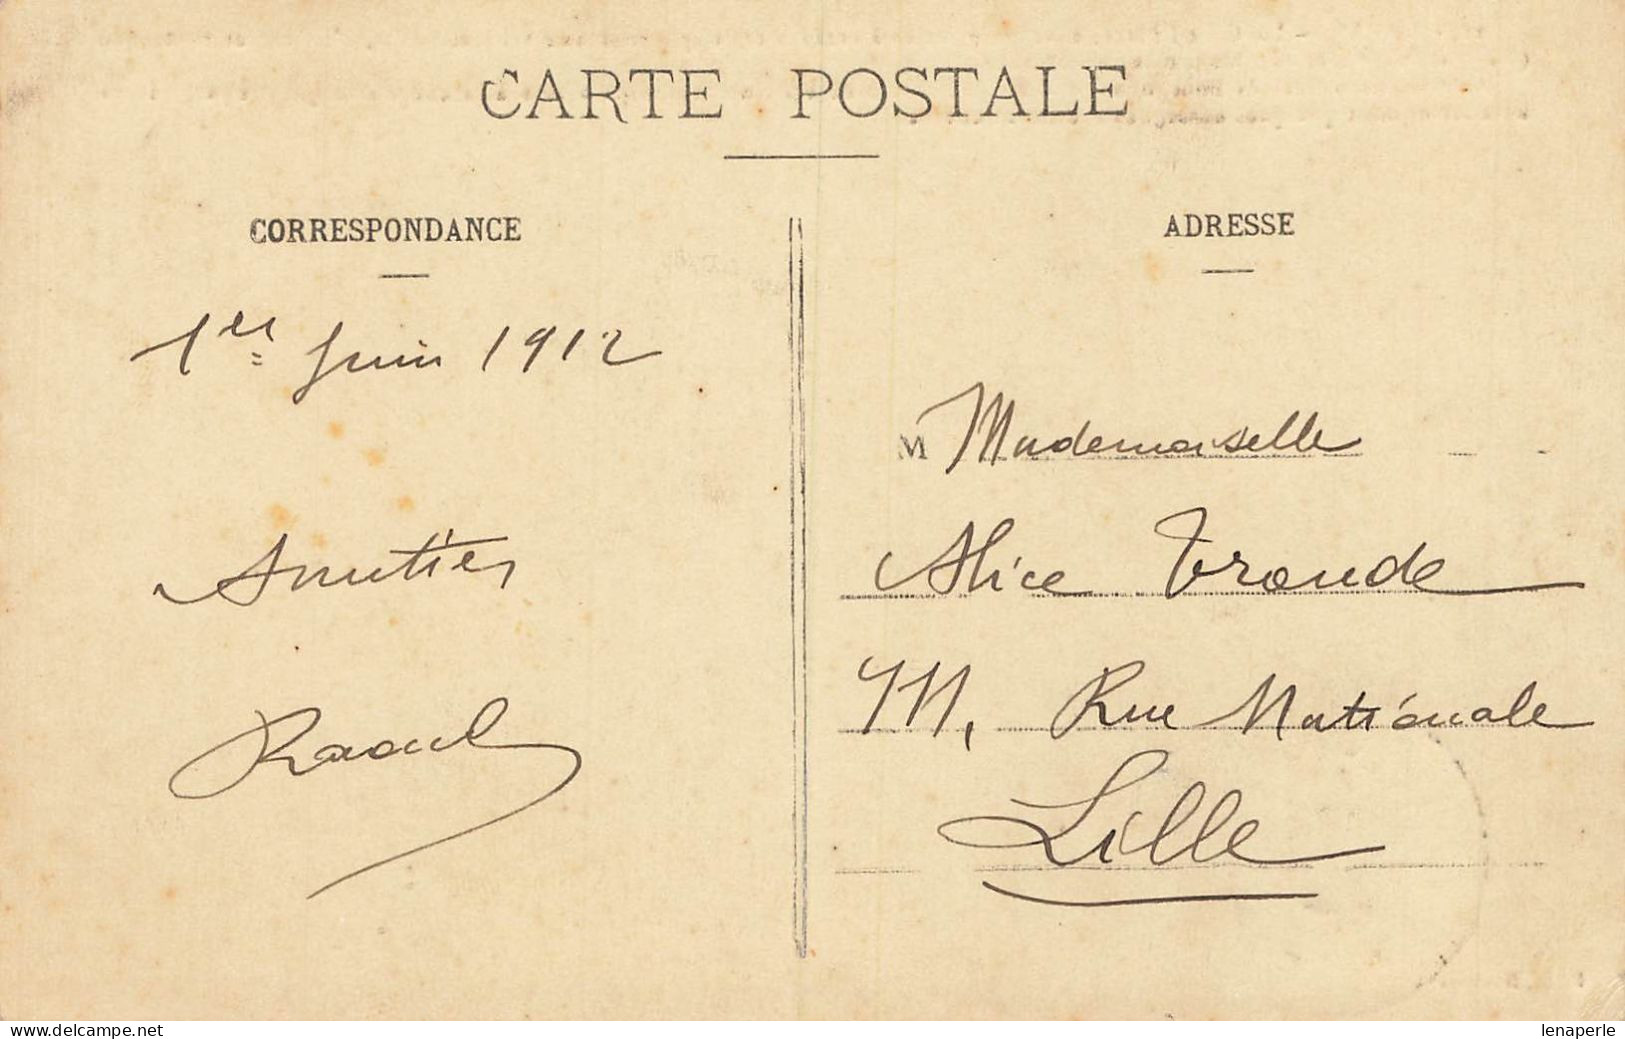 CARTE POSTALE
CORRESPONDANCE
1er Juin 1912
Amitiés
Raoul
ADRESSE
M Mademoiselle
Alice Tronde
111, Rue Nationale
Lille
www.delcampe.net
lenaperle